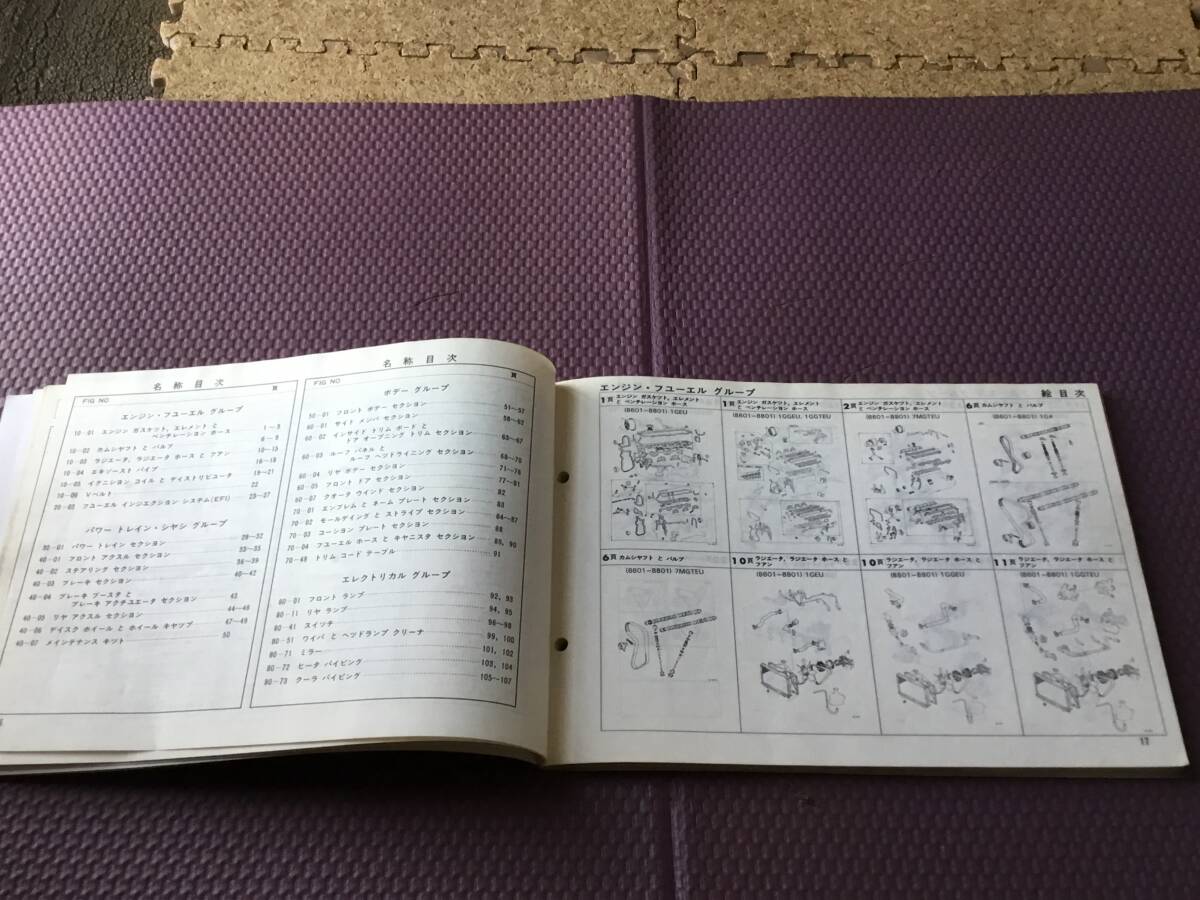 名称目次
FIG NO 頁
エンジン・フユーエル グループ
10-01 エンジン ガスケツト, エレメント と
ベンチレーシヨン ホース 1~5
10-02 カムシヤフト と バルブ
10-03 ラジエータ, ラジエータ ホース と フアン 10~15
10-04 エキゾースト パイプ 16~18
10-05 イクニシヨン コイル と デイストリビユータ 19~21
10-06 Vベルト 22
70-03 フユーエル インジエクシヨン システム(EFI) 23~27
パワー トレイン・シヤシ グループ
30-01 パワー トレイン セクシヨン 28~32
40-01 フロント アクスル セクシヨン 33~35
40-02 ステアリング セクシヨン 36~39
40-03 ブレーキ セクシヨン 40~42
40-04 ブレーキ ブースタ と
ブレーキ アクチユエータ セクシヨン 43
40-05 リヤ アクスル セクシヨン 44~46
40-06 デイスク ホイール と ホイール キヤツプ 47~49
40-07 メインテナンス キツト 50
名称目次
FIG NO 頁
ボデー グループ
50-01 フロント ボデー セクシヨン 51~57
60-01 サイド メンバ セクシヨン 58~62
60-02 インサイド トリム ボード と
ドア オープニング トリム セクシヨン 63~67
60-03 ルーフ パネル と
ルーフ ヘツドライニング セクシヨン 68~70
60-04 リヤ ボデー セクシヨン 71~76
60-05 フロント ドア セクシヨン 77~81
60-07 クオータ ウインド セクシヨン 82
70-01 エンブレム と ネーム プレート セクシヨン 83
70-02 モールデイング と ストライプ セクシヨン 84~87
70-03 コーシヨン プレート セクシヨン 88
70-04 フユーエル ホース と キヤニスタ セクシヨン 89, 90
70-48 トリム コード テーブル 91
エレクトリカル グループ
80-01 フロント ランプ 92, 93
80-11 リヤ ランプ 94, 95
80-41 スイツチ 96~98
80-51 ワイパ と ヘツドランプ クリーナ 99, 100
80-71 ミラー 101, 102
80-72 ヒータ パイピング 103, 104
80-73 クーラ パイピング 105~107
エンジン・フユーエル グループ
絵目次
1頁 エンジン ガスケツト, エレメント と ベンチレーシヨン ホース
(8601~8801) 1GEU
1頁 エンジン ガスケツト, エレメント と ベンチレーシヨン ホース
(8601~8801) 1GGEU, 1GGTEU
2頁 エンジン ガスケツト, エレメント と ベンチレーシヨン ホース
(8601~8801) 7MGTEU
6頁 カムシヤフト と バルブ
(8601~8801) 1G#
6頁 カムシヤフト と バルブ
(8601~8801) 7MGTEU
10頁 ラジエータ, ラジエータ ホース と フアン
(8601~8801) 1GEU
10頁 ラジエータ, ラジエータ ホース と フアン
(8601~8801) 1GGEU
11頁 ラジエータ, ラジエータ ホース と フアン
(8601~8801) 1GGTEU
17